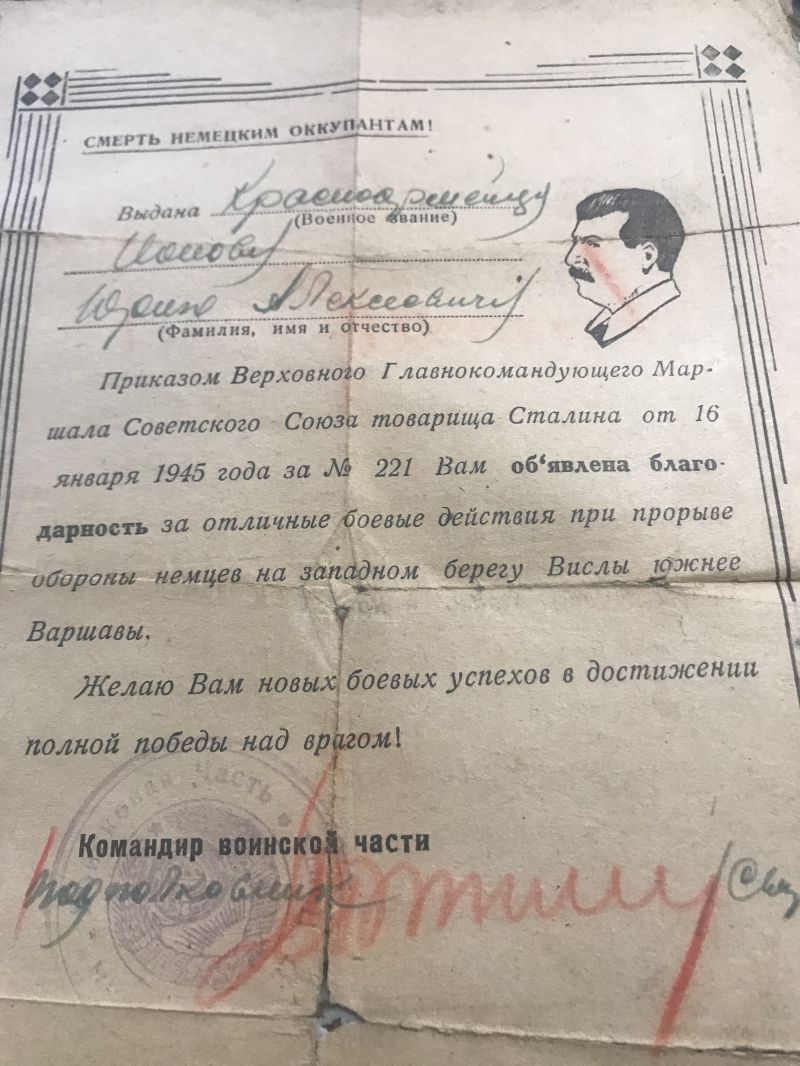 СМЕРТЬ НЕМЕЦКИМ ОККУПАНТАМ!
Выдана Красноармейцу
(Военное звание)
Попову
Юрию Алексеевичу
(Фамилия, имя и отчество)
Приказом Верховного Главнокомандующего Мар-
шала Советского Союза товарища Сталина от 16
января 1945 года за № 221 Вам об‘явлена благо-
дарность за отличные боевые действия при прорыве
обороны немцев на западном берегу Вислы южнее
Варшавы.
Желаю Вам новых боевых успехов в достижении
полной победы над врагом!
Командир воинской части
подполковник
часть